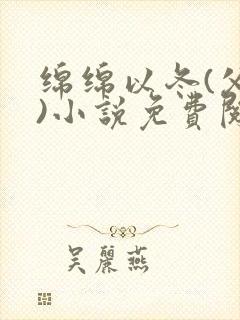 绵绵以冬(父
)小說免費閱
吴麗燕